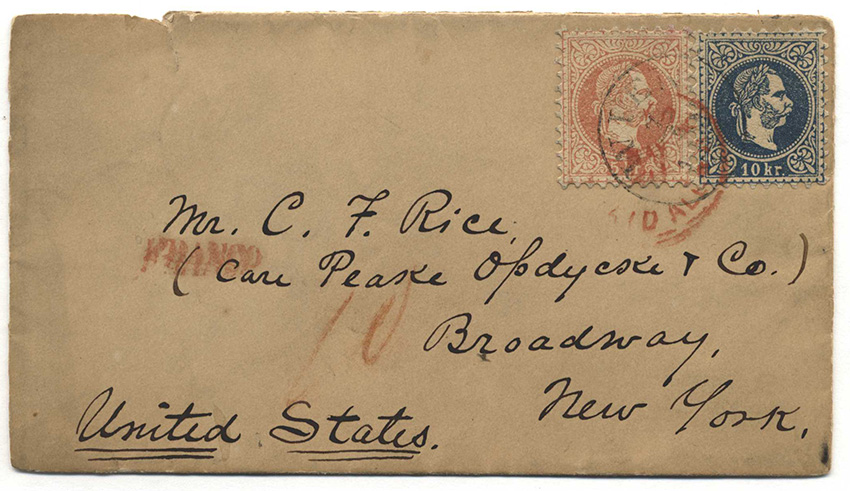 10 kr.
Mr. C. F. Rice,
FRANCO
(Care Peake Opdycke & Co.)
10
Broadway,
New York,
United States.